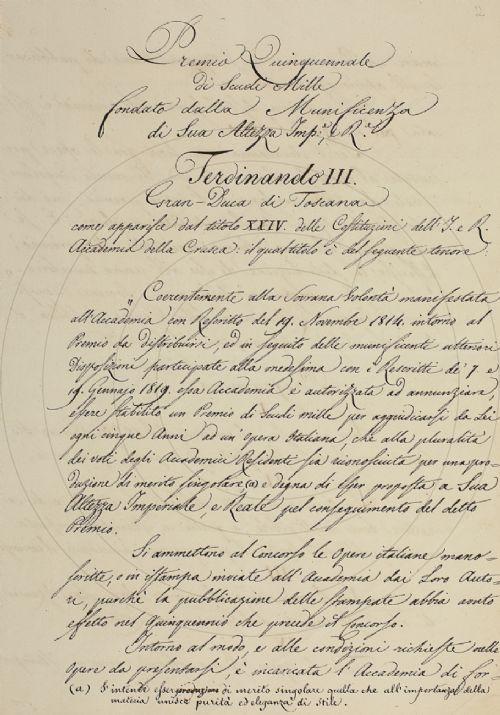 12
Premio Quinquennale
di Scudi Mille
fondato dalla Munificenza
di Sua Altezza Imp.e, e R.e
Ferdinando III.
Gran-Duca di Toscana
come apparisce dal titolo XXIV. delle Costituzioni dell'I. e R.
Accademia della Crusca: il qual titolo è del seguente tenore.
„Coerentemente alla Sovrana Volontà manifestata
all'Accademia con Rescritto del 19. Novembre 1814. intorno al
Premio da distribuirsi, ed in seguito delle munificente ulteriori
Disposizioni partecipate alla medesima con i Rescritti de' 7 e
19. Gennajo 1819. essa Accademia è autorizzata ad annunziare,
essere stabilito un Premio di Scudi mille per aggiudicarsi da Lei
ogni cinque Anni ad un'Opera Italiana, che alla pluralità
dei voti degli Accademici Residenti sia riconosciuta per una pro-
duzione di merito singolare (a) e degna di esser proposta a Sua
Altezza Imperiale, e Reale pel conseguimento del detto
Premio.
Si ammettono al Concorso le Opere italiane mano-
scritte, o in istampa inviate all'Accademia dai Loro Auto-
ri, purchè la pubblicazione delle stampate abbia avuto
effetto nel Quinquennio che precede il Concorso.
Intorno al modo, e alle condizioni richieste nelle
Opere da presentarsi, è incaricata l'Accademia di for-
(a) S'intende esser produzione di merito singolare quella che all'importanza della
materia unisce purità ed eleganza di stile.